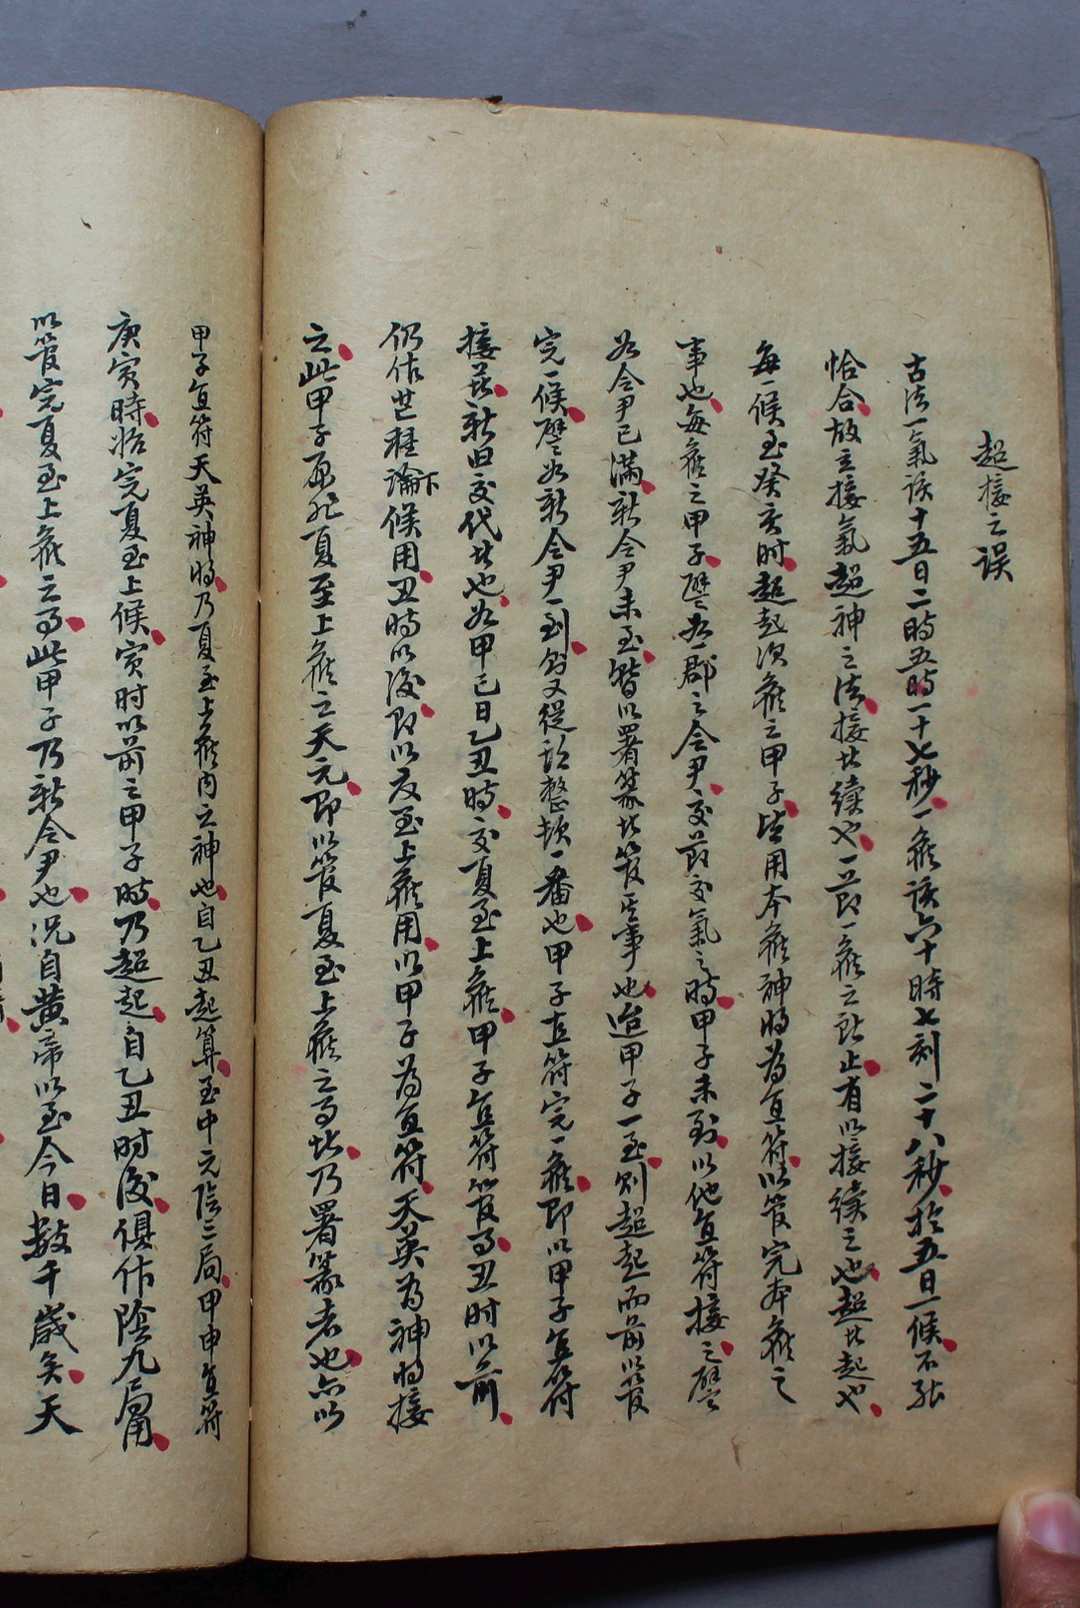 超接之误
古法一氣该十五日二時五時一十七秒一候该六十時七刻二十八秒於五日一候不能
恰合故立接氣超神之法接者續也一节一候之缺止有以接續之也超者起也
每一候至癸亥时超起次候之甲子皆用本候神將為直符以管完本候之
事也每候之甲子譬如一郡之令尹交節交氣之時甲子未到以他直符接之譬
如令尹已滿新令尹未至暫以署篆者管其事也迨甲子一至则超起而前以管
完一候譬如新令尹一到另又從頭整頓一番也甲子直符完一候即以甲子直符
接疏新旧交代者也如甲己日乙丑時交夏至上候甲子直符管事丑时以前
仍作芒種論下候用丑時以後即以夏至上候用以甲子為直符天英為神將接
之此甲子原非夏至上候之天元即以管夏至上候之事者乃署篆者也亦以
甲子直符天英神將乃夏至上候内之神也自乙丑起算至中元陰三局甲申直符
庚寅時始完夏至上候寅时以前之甲子時乃超起自乙丑时後俱作陰九局用
以管完夏至上候之事此甲子乃新令尹也况自黄帝以至今日数千歲矣天